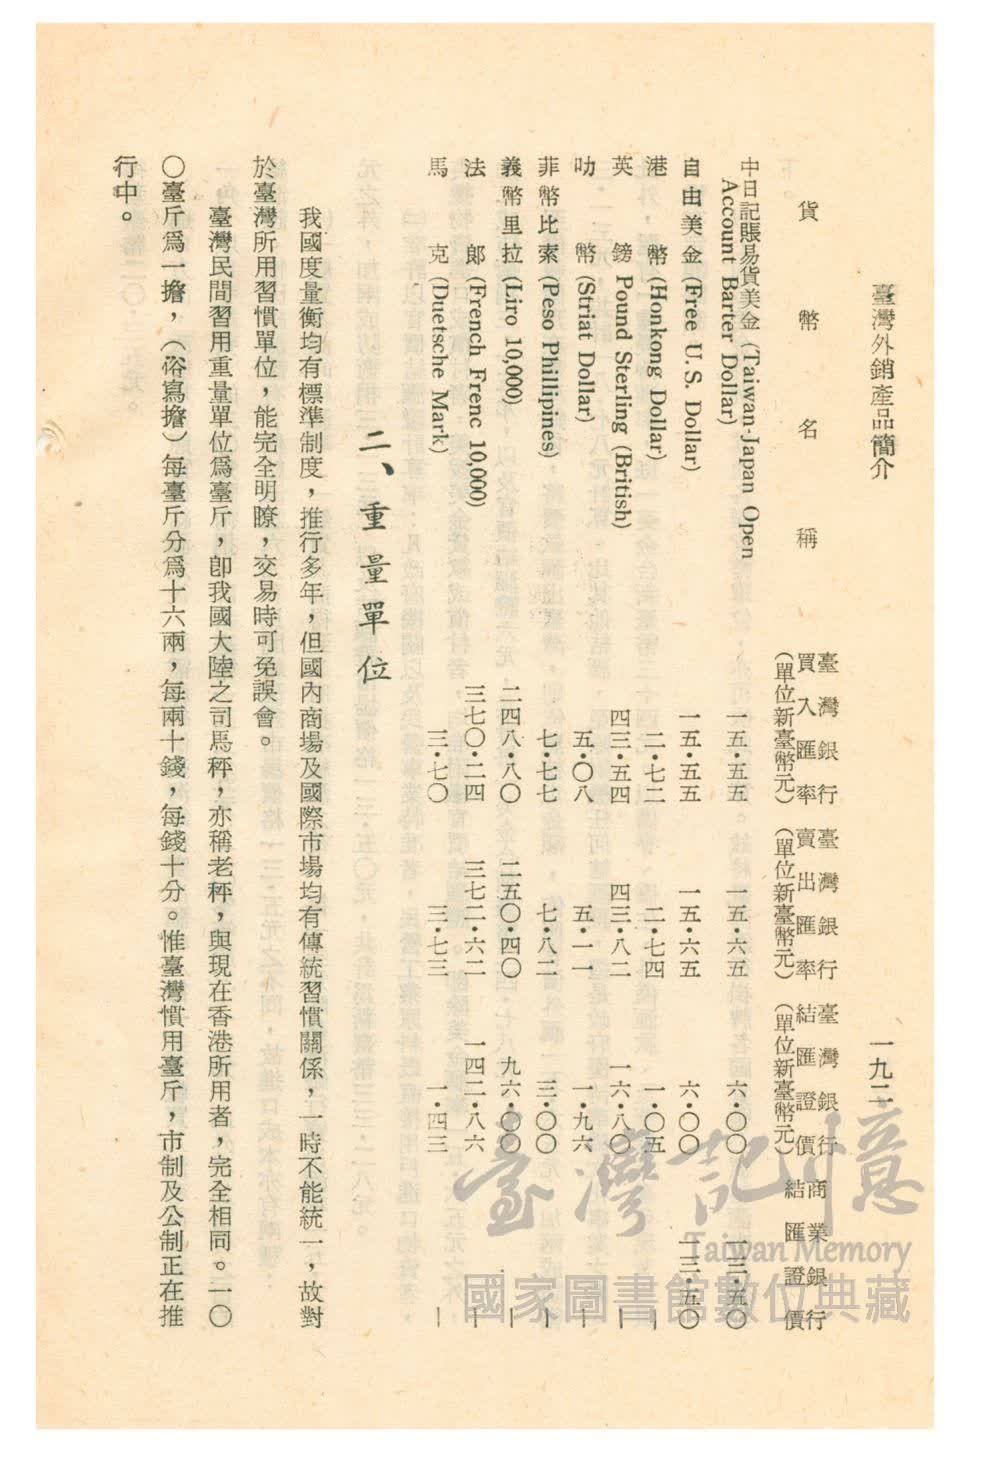 臺灣外銷產品簡介
一九二
貨幣名稱
臺灣銀行買入匯率(單位新臺幣元)
臺灣銀行賣出匯率(單位新臺幣元)
臺灣銀行結匯證價(單位新臺幣元)
商業銀行結匯證價
中日記賬易貨美金(Taiwan-Japan Open Account Barter Dollar) 一五•五五 一五•六五 六•〇〇 一三•五〇
自由美金(Free U.S. Dollar) 一五•五五 一五•六五 六•〇〇 一三•五〇
港幣(Honkong Dollar) 二•七二 二•七四 一•〇五 —
英鎊 Pound Sterling (British) 四三•五四 四三•八二 一六•八〇 —
叻幣(Striat Dollar) 五•〇八 五•一一 一•九六 —
菲幣比素(Peso Phillipines) 七•七七 七•八二 三•〇〇 —
義幣里拉(Liro 10,000) 二四八•八〇 二五〇•四〇 九六•〇〇 —
法郎(French Frenc 10,000) 三七〇•二四 三七二•六二 一四二•八六 —
馬克(Duetsche Mark) 三•七〇 三•七三 一•四三 —
二、重量單位
我國度量衡均有標準制度,推行多年,但國內商場及國際市場均有傳統習慣關係,一時不能統一,故對
於臺灣所用習慣單位,能完全明瞭,交易時可免誤會。
臺灣民間習用重量單位爲臺斤,卽我國大陸之司馬秤,亦稱老秤,與現在香港所用者,完全相同。一〇
〇臺斤爲一擔,(俗寫擔)每臺斤分爲十六兩,每兩十錢,每錢十分。惟臺灣慣用臺斤,市制及公制正在推
行中。
臺灣記憶
Taiwan Memory
國家圖書館數位典藏